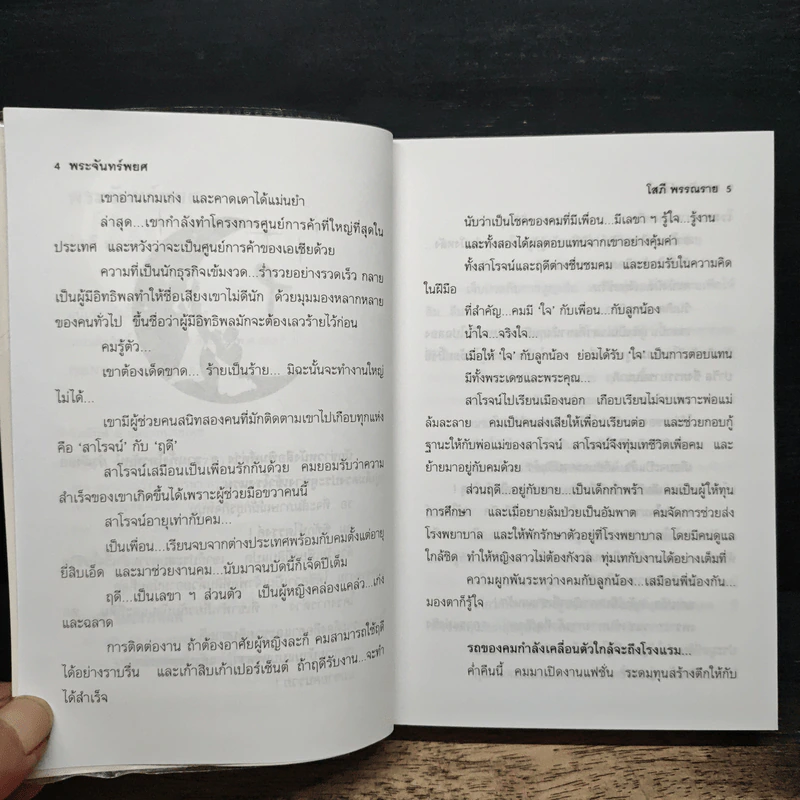 4 พระจันทร์พยศ
เขาอ่านเกมเก่ง และคาดเดาได้แม่นยำ
ล่าสุด...เขากำลังทำโครงการศูนย์การค้าที่ใหญ่ที่สุดใน
ประเทศ และหวังว่าจะเป็นศูนย์การค้าของเอเชียด้วย
ความที่เป็นนักธุรกิจเข้มงวด...ร่ำรวยอย่างรวดเร็ว กลาย
เป็นผู้มีอิทธิพลทำให้ชื่อเสียงเขาไม่ดีนัก ด้วยมุมมองหลากหลาย
ของคนทั่วไป ขึ้นชื่อว่าผู้มีอิทธิพลมักจะต้องเลวร้ายไว้ก่อน
คมรู้ตัว...
เขาต้องเด็ดขาด... ร้ายเป็นร้าย... มิฉะนั้นจะทำงานใหญ่
ไม่ได้...
เขามีผู้ช่วยคนสนิทสองคนที่มักติดตามเขาไปเกือบทุกแห่ง
คือ ‘สาโรจน์’ กับ ‘ฤดี’
สาโรจน์เสมือนเป็นเพื่อนรักกันด้วย คมยอมรับว่าความ
สำเร็จของเขาเกิดขึ้นได้เพราะผู้ช่วยมือขวาคนนี้
สาโรจน์อายุเท่ากับคม...
เป็นเพื่อน...เรียนจบจากต่างประเทศพร้อมกับคมตั้งแต่อายุ
ยี่สิบเอ็ด และมาช่วยงานคม...นับมาจนบัดนี้ก็เจ็ดปีเต็ม
ฤดี...เป็นเลขา ฯ ส่วนตัว เป็นผู้หญิงคล่องแคล่ว...เก่ง
และฉลาด
การติดต่องาน ถ้าต้องอาศัยผู้หญิงละก็ คมสามารถใช้ฤดี
ได้อย่างราบรื่น และเก้าสิบเก้าเปอร์เซ็นต์ ถ้าฤดีรับงาน...จะทำ
ได้สำเร็จ
โสภี พรรณราย 5
นับว่าเป็นโชคของคมที่มีเพื่อน...มีเลขา ฯ รู้ใจ...รู้งาน
และทั้งสองได้ผลตอบแทนจากเขาอย่างคุ้มค่า
ทั้งสาโรจน์และฤดีต่างชื่นชมคม และยอมรับในความคิด
ในฝีมือ
ที่สำคัญ...คมมี ‘ใจ’ กับเพื่อน...กับลูกน้อง
น้ำใจ...จริงใจ...
เมื่อให้ ‘ใจ’ กับลูกน้อง ย่อมได้รับ ‘ใจ’ เป็นการตอบแทน
มีทั้งพระเดชและพระคุณ...
สาโรจน์ไปเรียนเมืองนอก เกือบเรียนไม่จบเพราะพ่อแม่
ล้มละลาย คมเป็นคนส่งเสียให้เพื่อนเรียนต่อ และช่วยกอบกู้
ฐานะให้กับพ่อแม่ของสาโรจน์ สาโรจน์จึงทุ่มเทชีวิตเพื่อคม และ
ย้ายมาอยู่กับคมด้วย
ส่วนฤดี...อยู่กับยาย...เป็นเด็กกำพร้า คมเป็นผู้ให้ทุน
การศึกษา และเมื่อยายล้มป่วยเป็นอัมพาต คมจัดการช่วยส่ง
โรงพยาบาล และให้พักรักษาตัวอยู่ที่โรงพยาบาล โดยมีคนดูแล
ใกล้ชิด ทำให้หญิงสาวไม่ต้องกังวล ทุ่มเทกับงานได้อย่างเต็มที่
ความผูกพันระหว่างคมกับลูกน้อง...เสมือนพี่น้องกัน...
มองตาก็รู้ใจ
รถของคมกำลังเคลื่อนตัวใกล้จะถึงโรงแรม...
ค่ำคืนนี้ คมมาเปิดงานแฟชั่น ระดมทุนสร้างตึกให้กับ